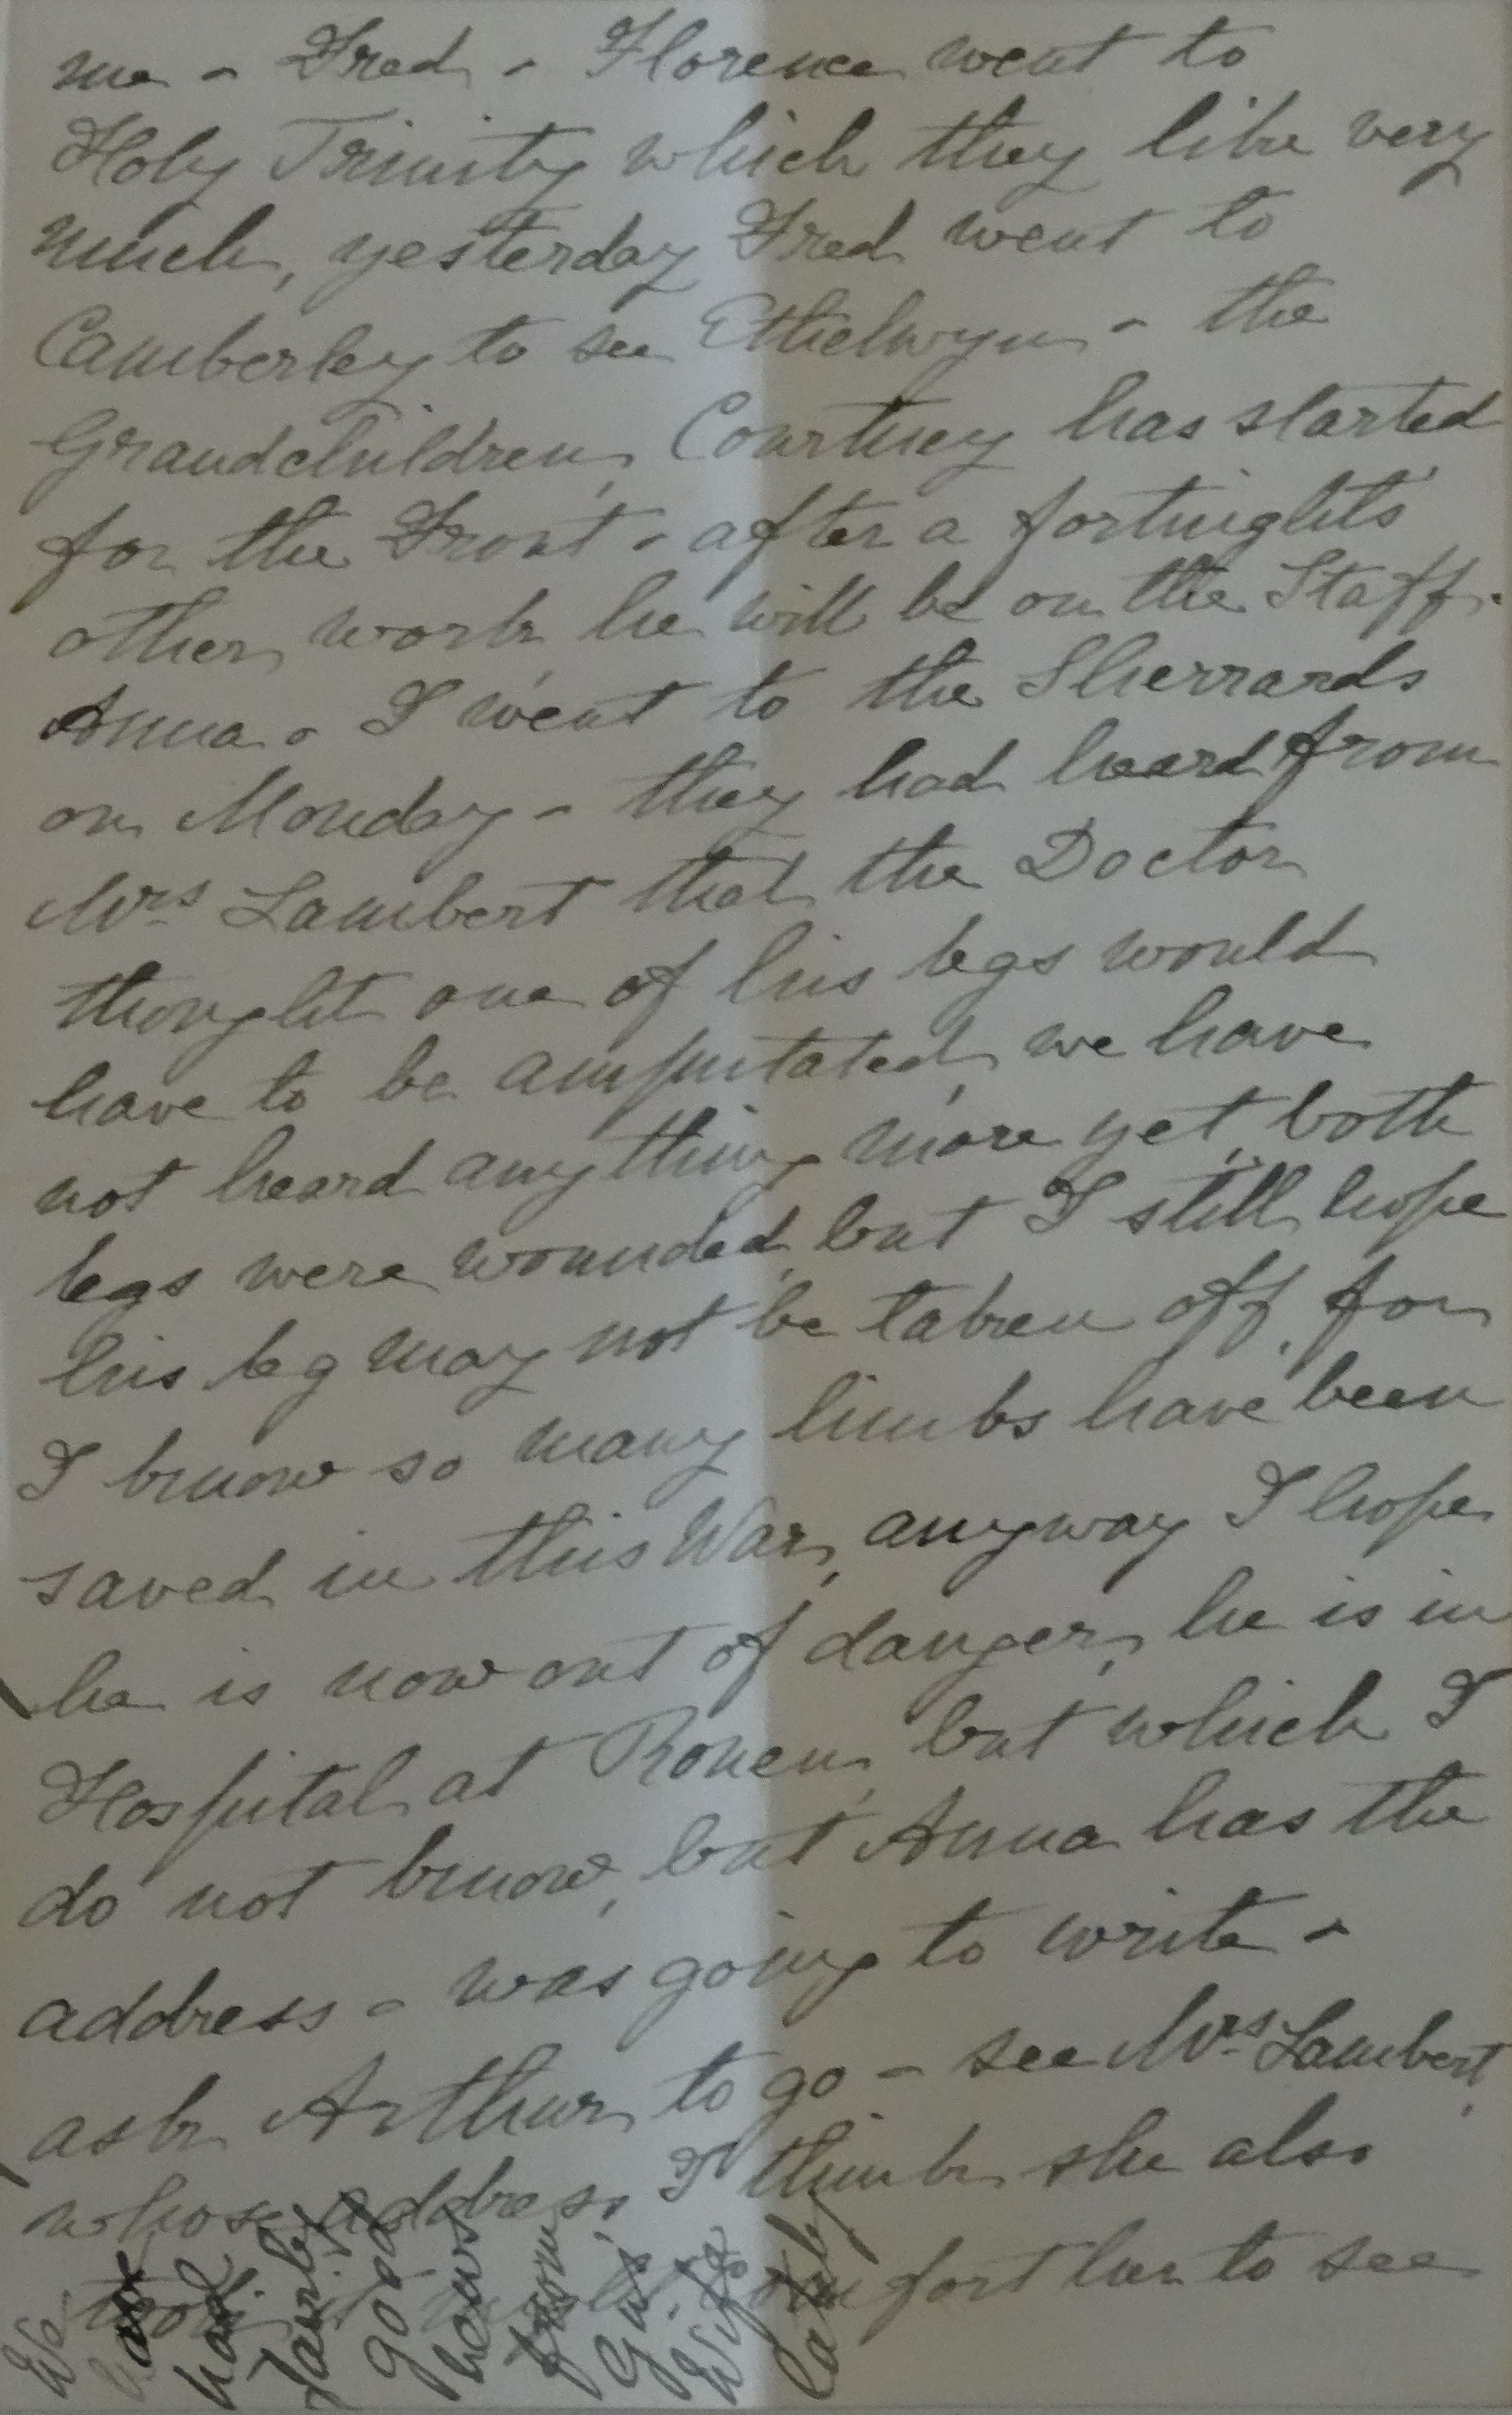 me - Fred - Florence went to
Holy Trinity which they like very
much, yesterday Fred went to
Camberley to see Ethelwyn - the
Grandchildren, Courtney has started
for the Front - after a fortnight's
other work he will be on the Staff.
Anna - I went to the Sherrards
on Monday - they had heard from
Mrs Lambert that the Doctor
thought one of his legs would
have to be amputated, we have
not heard anything more yet, both
legs were wounded, but I still hope
his leg may not be taken off, for
I know so many limbs have been
saved in this War, anyway I hope
he is now out of danger, he is in
Hospital at Rouen, but which I
do not know, but Anna has the
address - was going to write -
ask Arthur to go - see Mrs Lambert,
whose address I think she also
took it would comfort her to see
We
have
had
fairly
good
news
from
Gus
Wife
lately